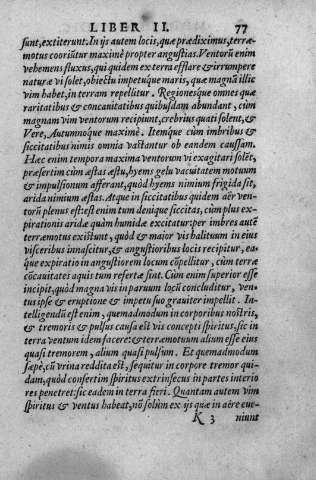 LIBER II. 77
sunt, extiterunt. In ijs autem locis, quæ prædiximus, terræ-
motus cooriũtur maximè propter angustias. Ventorũ enim
vehemens fluxus, qui quidem ex terra efflare & irrumpere
naturæ vi solet, obiectu impetuque maris, quæ magnã illic
vim habet, in terram repellitur. Regionesque omnes quæ
raritatibus & concauitatibus quibusdam abundant, cùm
magnam vim ventorum recipiunt, crebrius quati solent, &
Vere, Autumnoque maximè. Itemque cùm imbribus &
siccitatibus nimis omnia vastantur ob eandem caussam.
Hæc enim tempora maxima ventorum vi exagitari solẽt,
præsertim cùm æstas æstu, hyems gelu vacuitatem motuum
& impulsionum afferant, quòd hyems nimium frigida sit,
arida nimium æstas. Atque in siccitatibus quidem aër ven-
torũ plenus est: est enim tum denique siccitas, cùm plus ex-
pirationis aridæ quàm humidæ excitatur: per imbres autẽ
terræmotus existunt, quòd & maior vis halituum in eius
visceribus innascitur, & angustioribus locis recipitur, ea-
que expiratio in angustiorem locum cõpellitur, cùm terræ
cõcauitates aquis tum refertæ sint. Cùm enim superior esse
incipit, quòd magna vis in paruum locũ concluditur, ven-
tus ipse & eruptione & impetu suo grauiter impellit. In-
telligendũ est enim, quemadmodum in corporibus nostris,
& tremoris & pulsus causa est vis concepti spiritus, sic in
terra ventum idem facere: & terræmotuum alium esse eius
quasi tremorem, alium quasi pulsum. Et quemadmodum
sæpè, cũ vrina reddita est, sequitur in corpore tremor qui-
dam, quòd confertim spiritus extrinsecus in partes interio
res penetret: sic eadem in terra fieri. Quantam autem vim
spiritus & ventus habeat, nõ solùm ex ijs quæ in aëre eue-
K 3 niunt